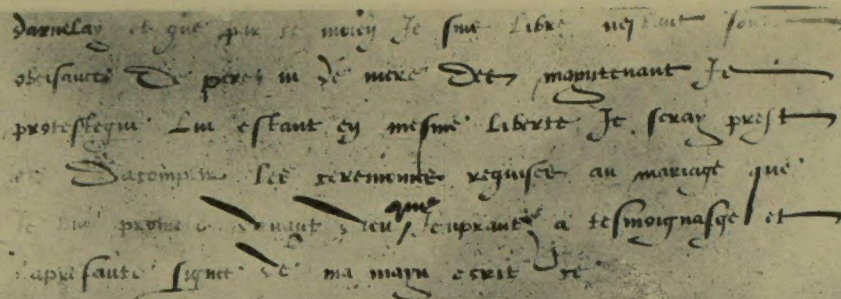 darnelay et que par ce moien Je suis libre nestant soubs
obeisance De pere ni de mere des mayntenant Je
protesteque lui estant en mesme liberte Je seray prest
et Dacomplir les ceremonies requises au mariage que
Je lui promets devant Dieu que jenprantz a tesmoignasge et
la presante signee de ma mayn ecrit ce